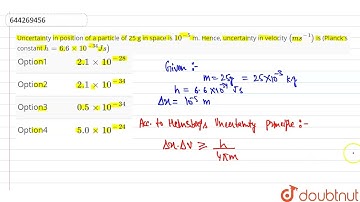 644269456
Uncertainty in position of a particle of 25 g in space is 10⁻⁵ m. Hence, uncertainty in velocity (ms⁻¹) is (Planck's
constant h = 6.6 × 10⁻³⁴ Js)
Option1 2.1 × 10⁻²⁸
Option2 2.1 × 10⁻³⁴
Option3 0.5 × 10⁻³⁴
Option4 5.0 × 10⁻²⁴
Given :-
m = 25g = 25×10⁻³ kg
h = 6.6×10⁻³⁴ Js
Δx = 10⁻⁵ m
Acc. to Heisenberg's Uncertainty Principle :-
Δx.Δv ≥ h/4πm
doubtnut